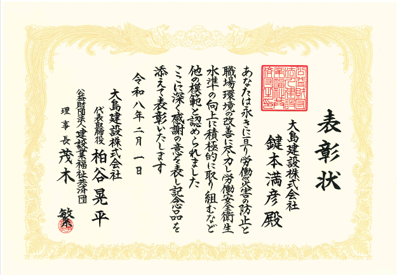 表彰状
大島建設株式会社
鍵本満彦 殿
あなたは永きに亘り労働災害の防止と
職場環境の改善に尽力し労働安全衛生
水準の向上に積極的に取り組むなど
他の模範と認められました
ここに深く感謝の意を表し記念品を
添えて表彰いたします
令和八年二月一日
大島建設株式会社
代表取締役 柏谷晃平
公益財団法人建設業福祉共済団
理事長 茂木 繁